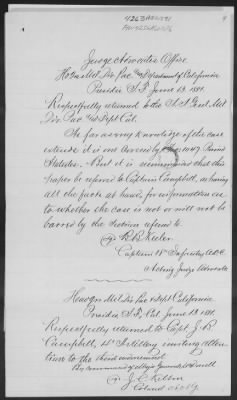 Judge Advocate's Office
Hdqrs Mil. Div. Pac. and Department of California
Presidio S.F. June 13. 1881.
Respectfully returned to the A.A. Genl. Mil.
Div. Pac. and Dept Cal.
So far as my knowledge of the case
extends it is not covered by Sec. 1047 Revised
Statutes. But it is recommended that this
paper be referred to Captain Campbell, as having
all the facts at hand, for information as
to whether the case is or will not be
barred by the Section referred to.
Captain 12" Infantry A.D.C.
Acting Judge Advocate
Hdqrs Mil Div Pac & Dept California
Presidio S.F., Cal. June 13. 1881.
Respectfully returned to Capt. J. B.
Campbell, 4" Artillery inviting atten-
tion to the third endorsement
By command of Major General McDowell
J. C. Kelton
Colonel